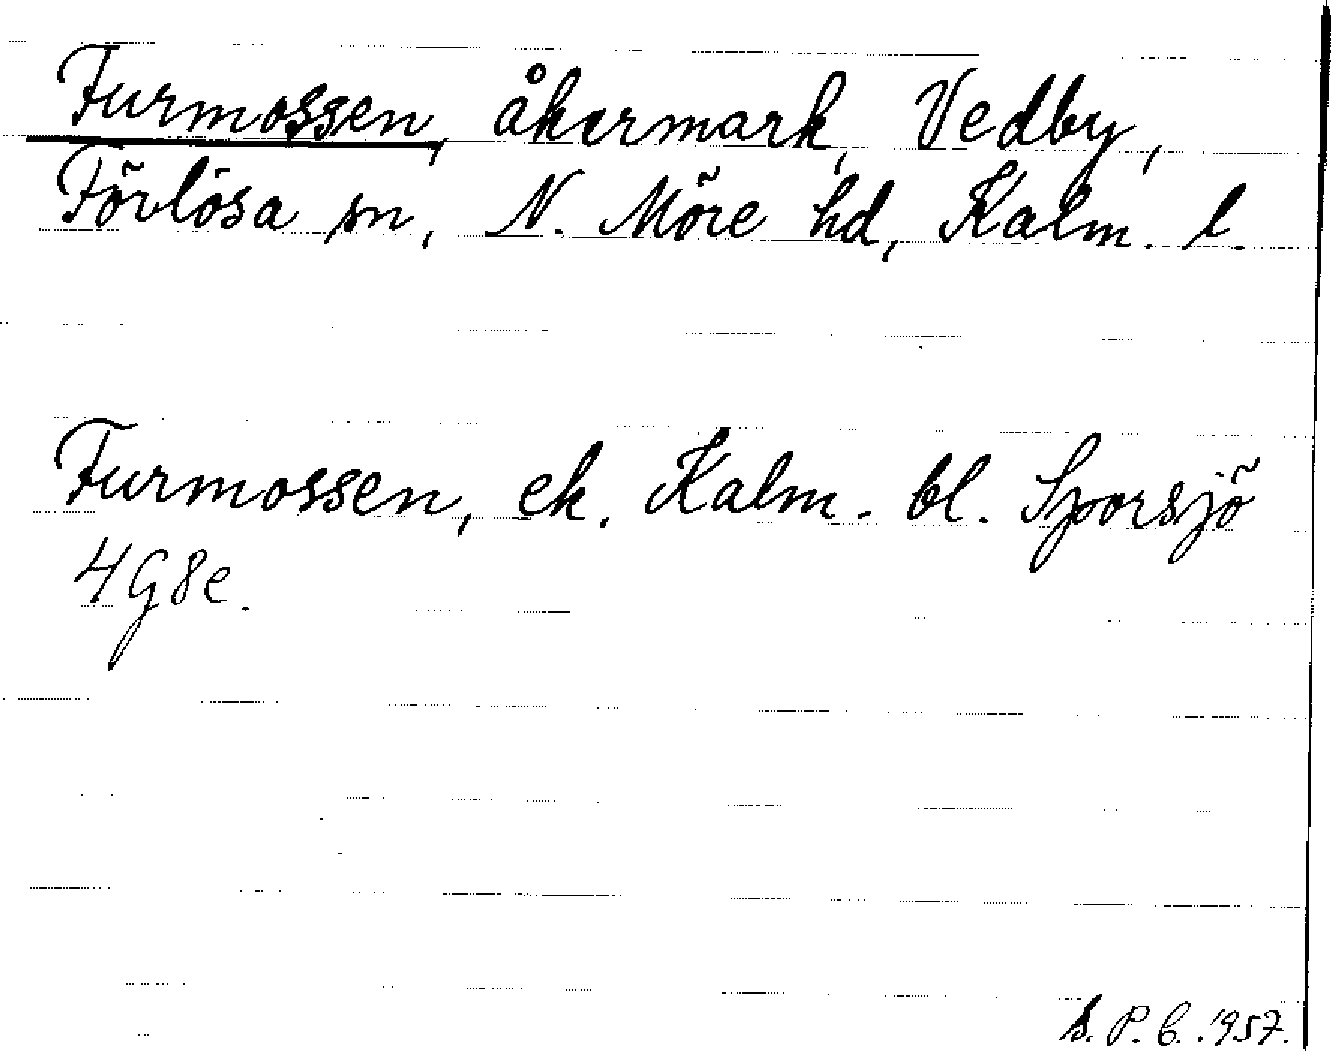 Furmossen, åkermark, Vedby,
Förlösa sn, N. Möre hd, Kalm. l.
Furmossen, ek. Kalm. bl. Sporsjö
4G8e.
S.P.B. 1957.